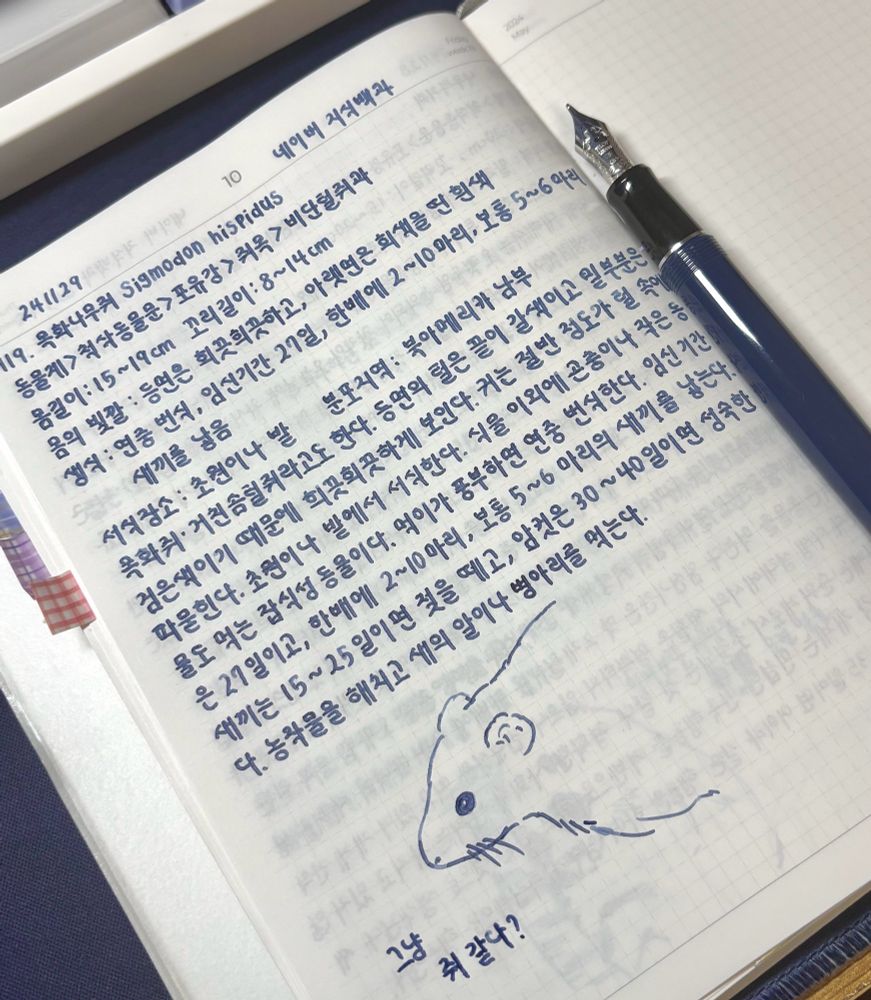 2024
May
Friday
10
네이버 지식백과
241129
119. 목화나무쥐 Sigmodon hispidus
동물계>척삭동물문>포유강>쥐목>비단털쥐과
몸길이:15~19cm 꼬리길이:8~14cm
몸의 빛깔: 등면은 희끗희끗하고, 아랫면은 회색을 띤 흰색
생식: 연중 번식, 임신기간 27일, 한배에 2~10마리, 보통 5~6마리
새끼를 낳음
서식장소: 초원이나 밭 분포지역: 북아메리카 남부
목화쥐·거친솜털쥐라고도 한다. 등면의 털은 끝이 갈색이고 밑부분은
검은색이기 때문에 희끗희끗하게 보인다. 귀는 절반 정도가 털 속에
파묻힌다. 초원이나 밭에서 서식한다. 식물 이외에 곤충이나 작은 동
물도 먹는 잡식성 동물이다. 먹이가 풍부하면 연중 번식한다. 임신기간
은 27일이고, 한배에 2~10마리, 보통 5~6 마리의 새끼를 낳는다.
새끼는 15~25일이면 젖을 떼고, 암컷은 30~40일이면 성숙한
다. 농작물을 해치고 새의 알이나 병아리를 먹는다.
그냥
쥐 같다?